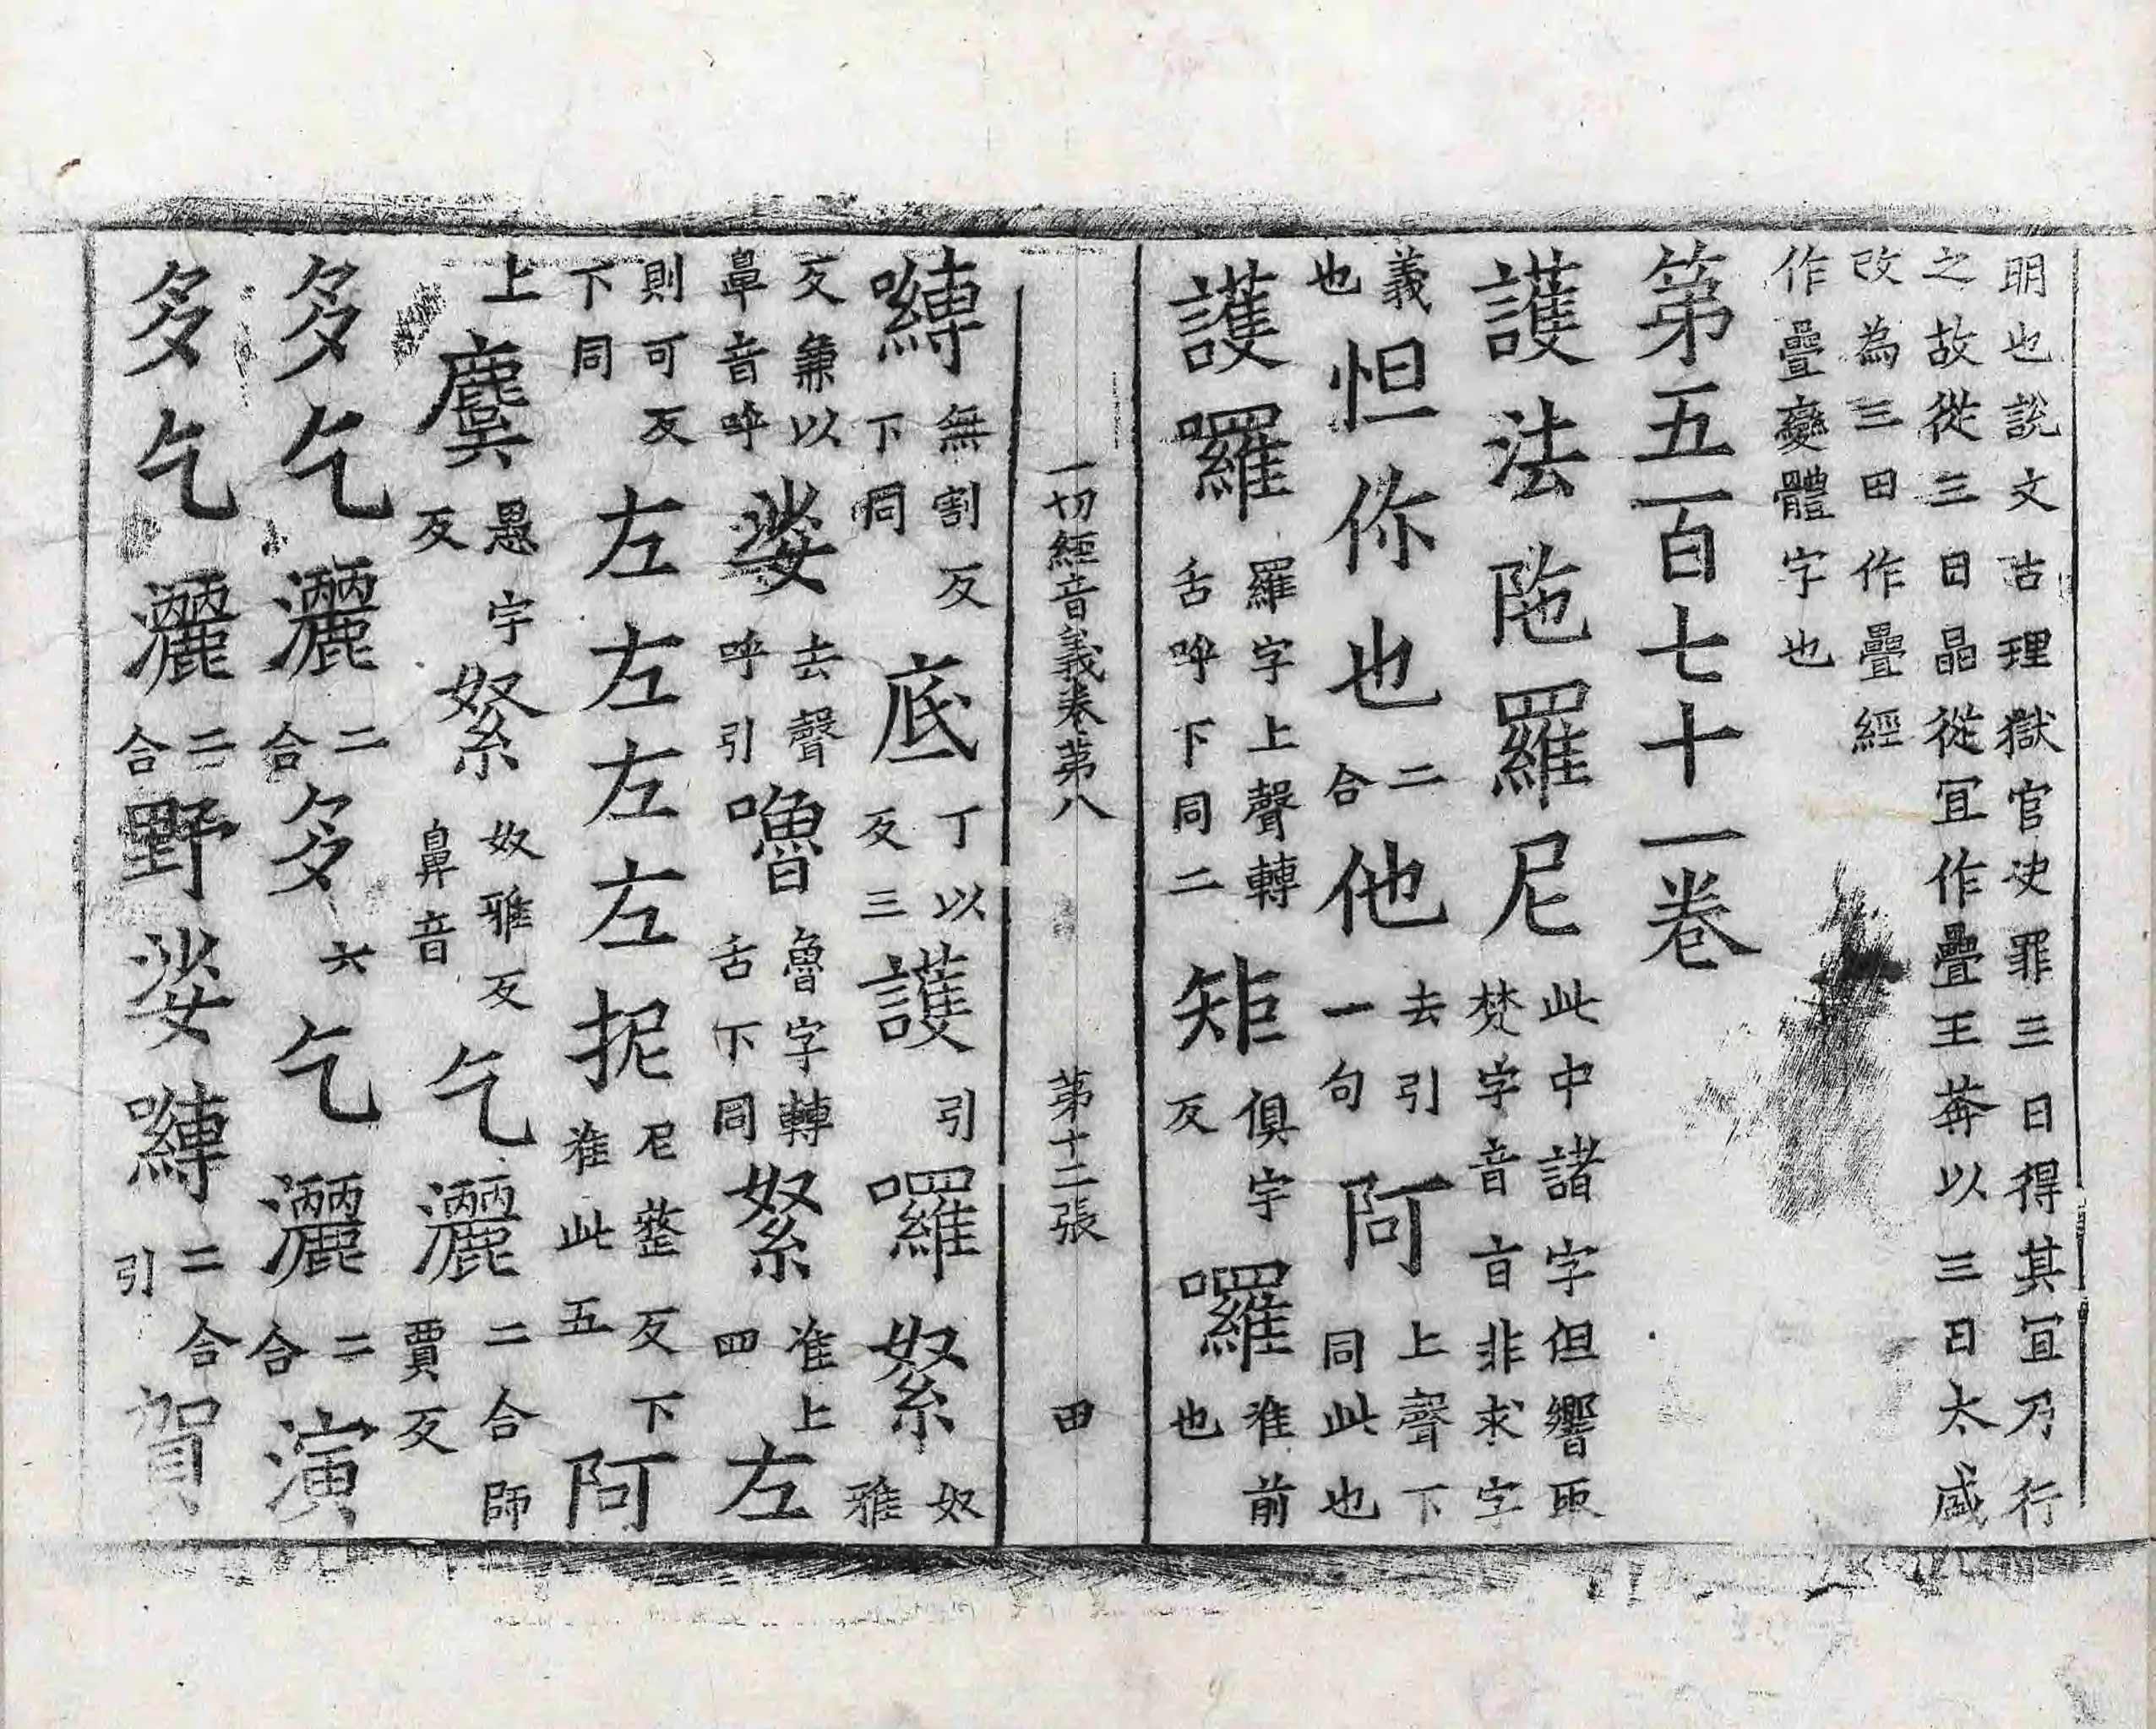 明也說文古理獄官决罪三日得其冝乃行
之故從三日晶從冝作疊王莽以三日太盛
改為三田作疊經
作疊變體字也
第五百七十一卷
護法陁羅尼此中諸字但響取梵字音旨非求字
義也怛你也二合他去引一句阿上聲下同此也
護囉羅字上聲轉舌呼下同二矩俱字反囉准前也
一切經音義卷第八 第十二張 田
嚩無割反下同底丁以反三護引囉絮奴雅
反兼以鼻音呼娑去聲呼引嚕魯字轉舌下同絮准上四左
則可反下同左左左左抳尼整反下准此五阿
上麌愚字反絮奴雅反鼻音乞灑二合師賈反
多乞灑二合多六乞灑二合演
多乞灑二合野娑嚩二合引賀